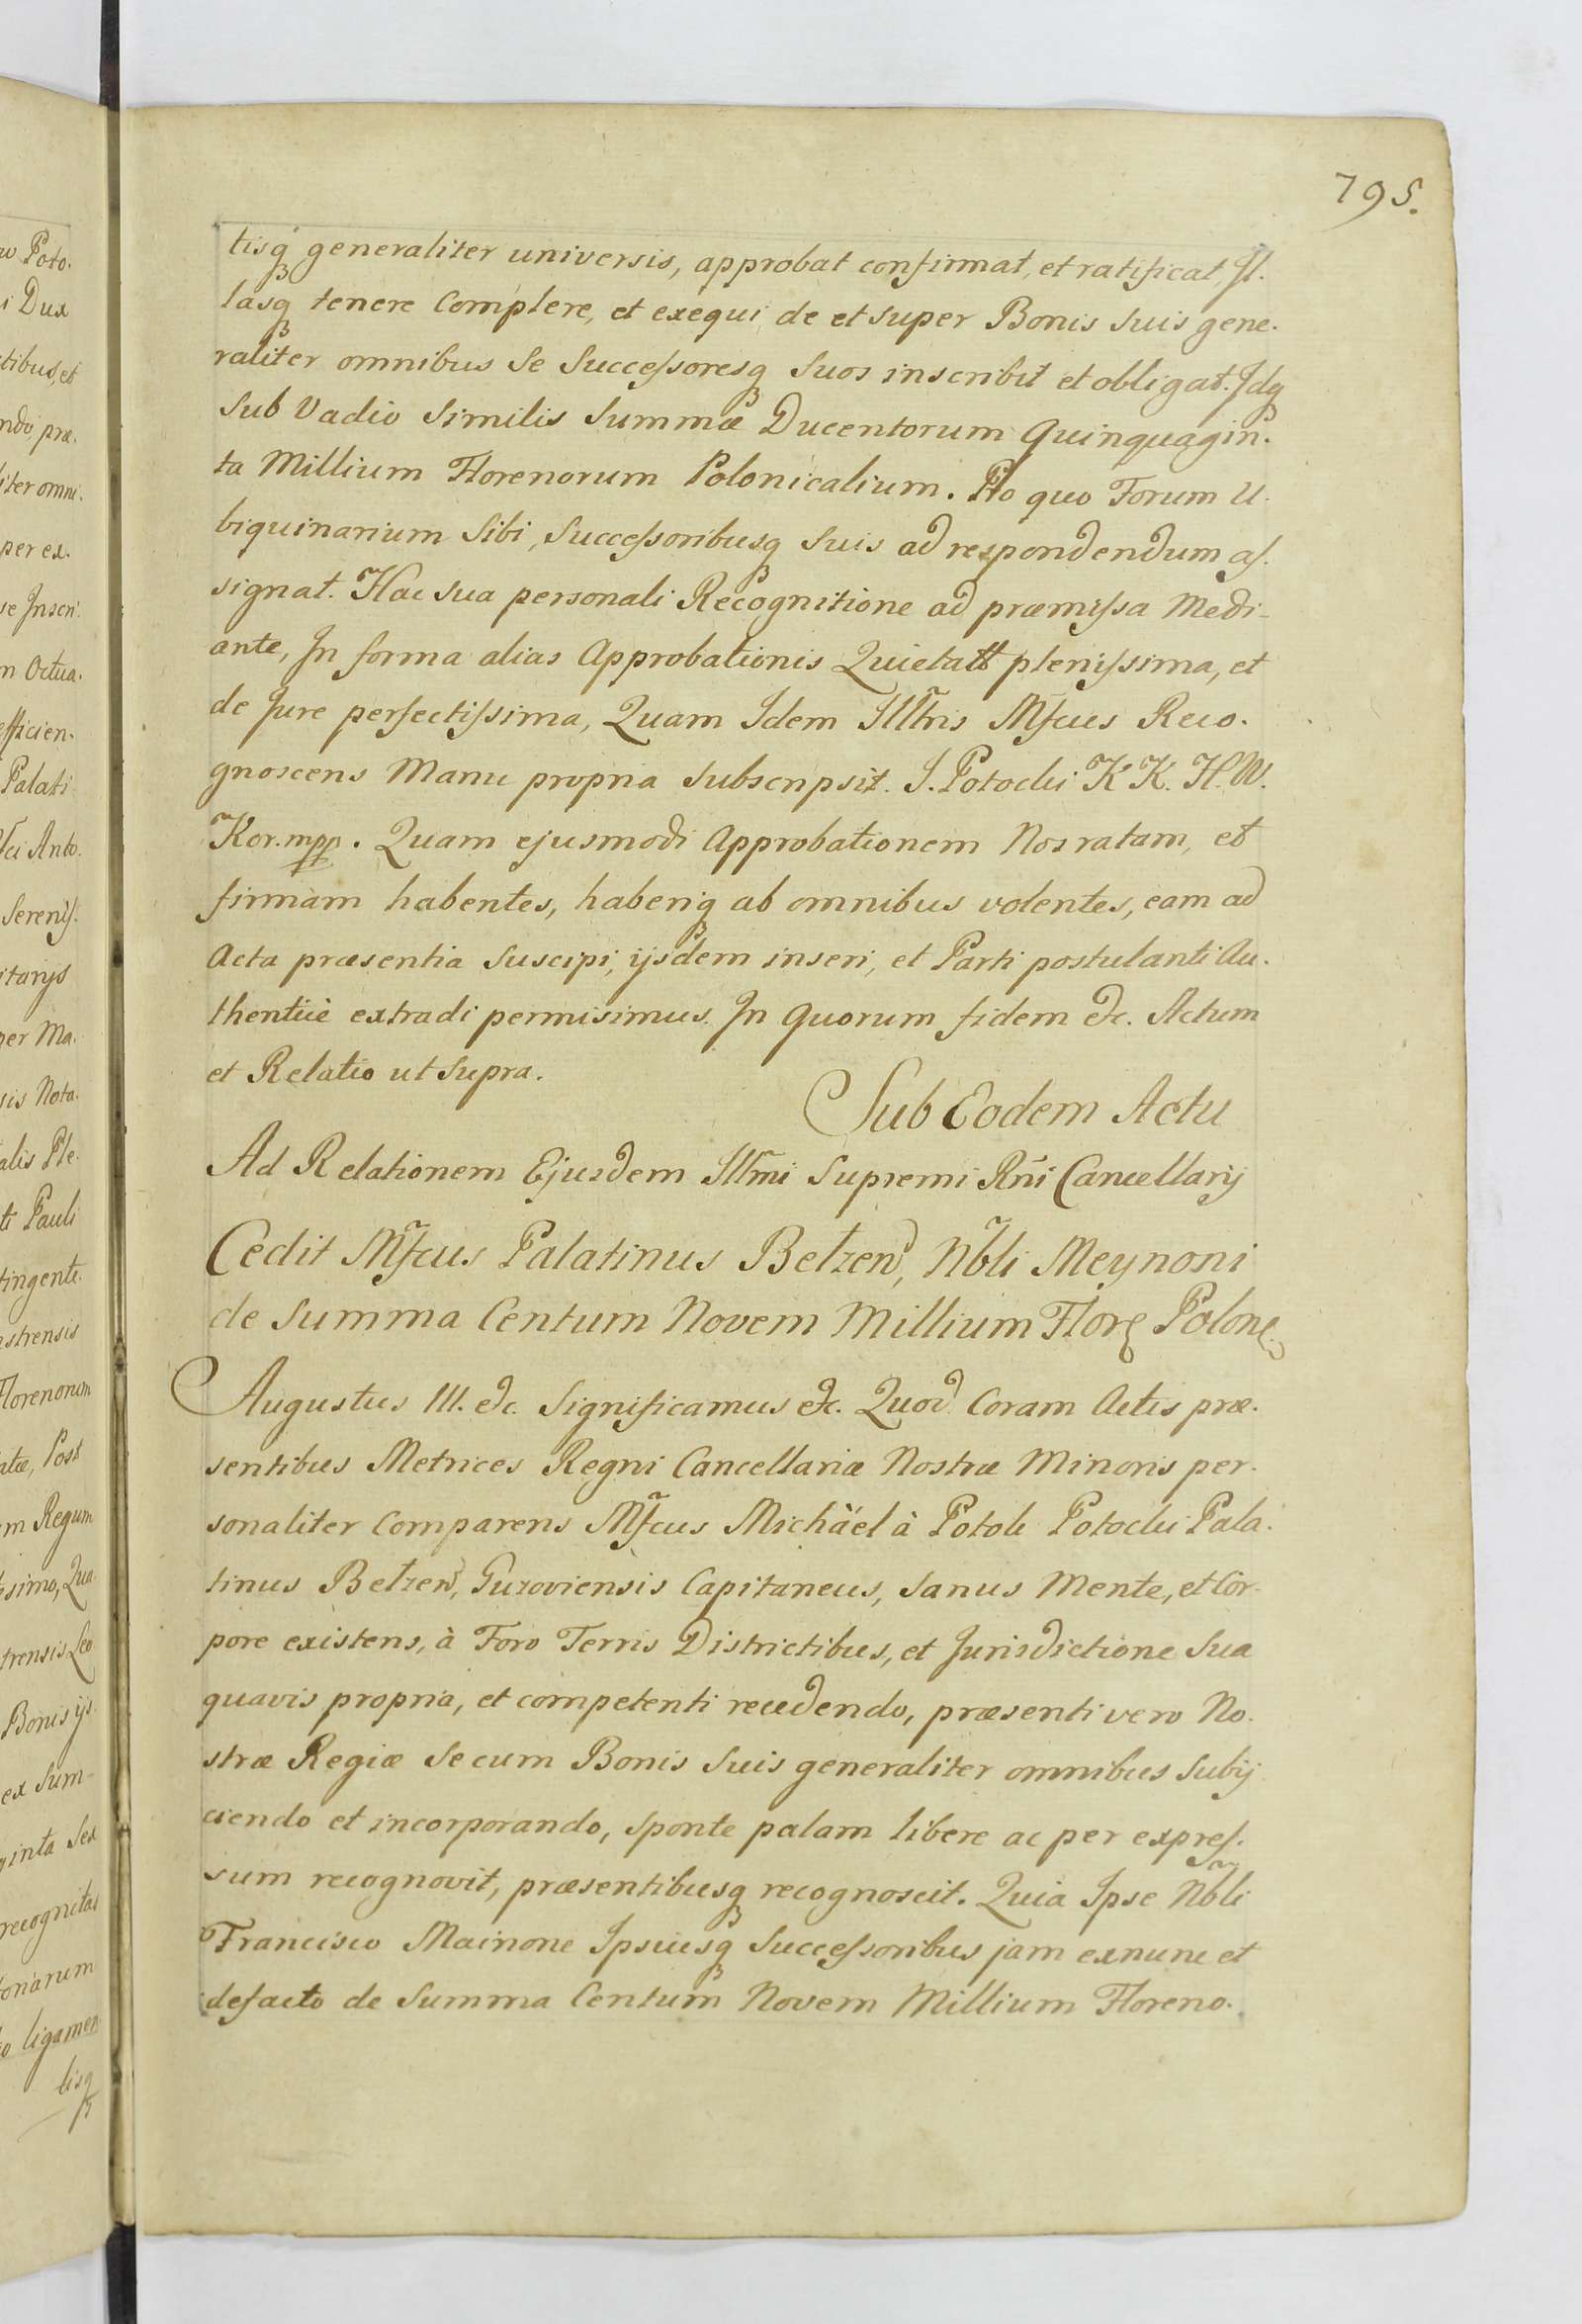 795.
tisq́ generaliter universis, approbat confirmat, et ratificat, Il.
lasq́ tenere Complere, et exequi de et super Bonis Suis gene.
raliter omnibus Se Successoresq́ Suos inscribit et obligat. Idq́
Sub Vadio Similis Summæ Ducentorum Quinquagin.
ta Millium Florenorum Polonicalium. Pro quo Forum U.
biquinarium Sibi, Successoribusq́ Suis ad respondendum as.
signat. Hac Sua personali Recognitione ad præmissa Medi-
ante, In forma alias Approbationis plenissima, et
de Jure perfectissima, Quam Idem Illt̃ris Mf̃cus Reco.
gnoscens Manu propria Subscripsit. J. Potocki K K. H. W.
Kor. mpp. Quam ejusmodi Approbationem Nos ratam, et
firmam habentes, haberiq́ ab omnibus volentes, eam ad
Acta præsentia Suscipi, ijsdem inseri, et Parti postulanti Au.
thenticè extradi permisimus. In quorum fidem &c. Actum
et Relatio ut Supra.
Sub Eodem Actu
Ad Relationem Ejusdem Illm̃i Supremi Rñi Cancellarij
Cedit Mf̃cus Palatinus Betzen, Nb̃li Meynoni
de Summa Centum Novem Millium Flor Polon
Augustus III. &c. Significamus &c. Quod Coram Actis præ.
sentibus Metrices Regni Cancellariæ Nostræ Minoris per.
sonaliter Comparens Mf̃cus Michäel à Potok Potocki Pala.
tinus Betzen, Guzoviensis Capitaneus, Sanus Mente, et Cor-
pore existens, à Foro Terris Districtibus, et Jurisdictione Sua
quavis propria, et competenti recedendo, præsenti vero No.
stræ Regiæ Se cum Bonis Suis generaliter omnibus Subij
ciendo et incorporando, sponte palam libere ac per expres.
sum recognovit, præsentibusq́ recognoscit. Quia Ipse Nb̃li
Francisco Mainone Ipsiusq́ Successoribus jam exnunc et
defacto de Summa Centum Novem Millium Floreno.